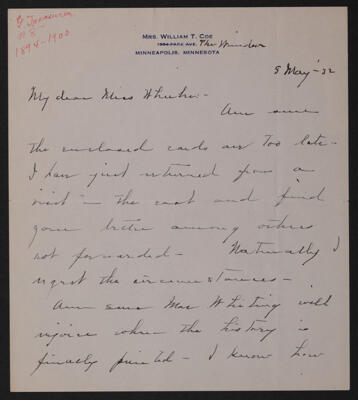 G Treasurer
π β Φ
1894-1900
MRS. WILLIAM T. COE
1984 PARK AVE. The Windsor
MINNEAPOLIS, MINNESOTA
5 May '32
My dear Miss Wheeler-
Am sure
the enclosed cards are too late-
I have just returned from a
visit in the east and find
your letter among others
not forwarded- Naturally I
regret the circumstances-
Am sure Mae Whiting will
rejoice when the history is
finally printed- I know how